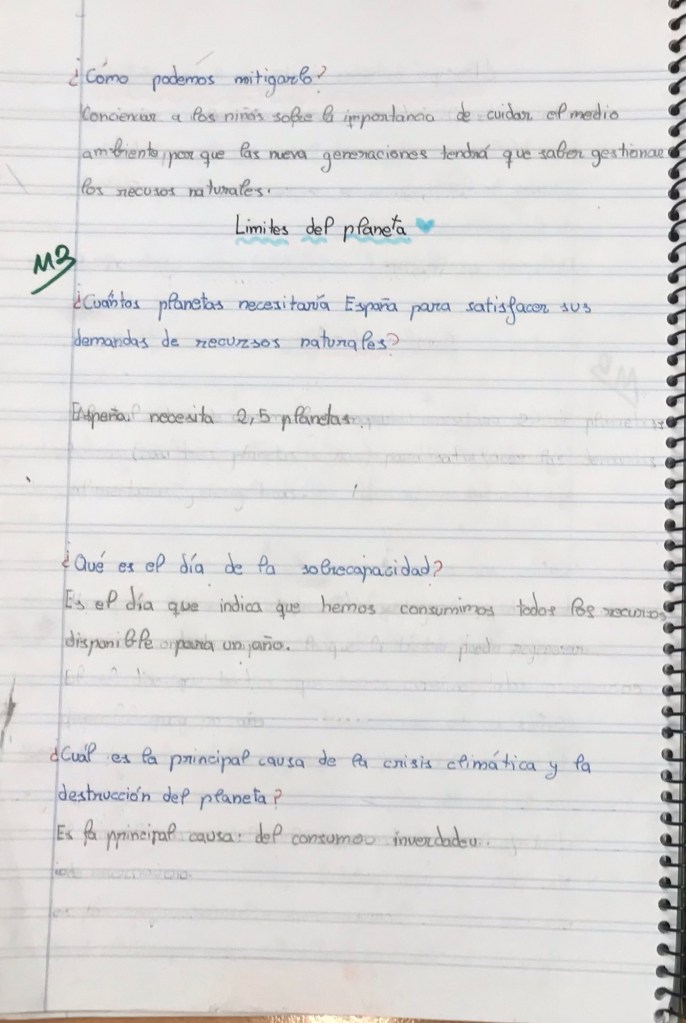 ¿Cómo podemos mitigarlo?
Concienciar a los niños sobre la importancia de cuidar el medio
ambiente, por que las nueva generaciones tendrá que saber gestionar
los recusos naturales.
Limites del planeta
M3
¿Cuántos planetas necesitaría España para satisfacer sus
demandas de recursos naturales?
España necesita 2,5 planetas.
¿Qué es el día de la sobrecapasidad?
Es el día que indica que hemos consumimos todos los recursos
disponible para un año.
¿Cuál es la principal causa de la crisis climática y la
destrucción del planeta?
Es la principal causa: del consumo